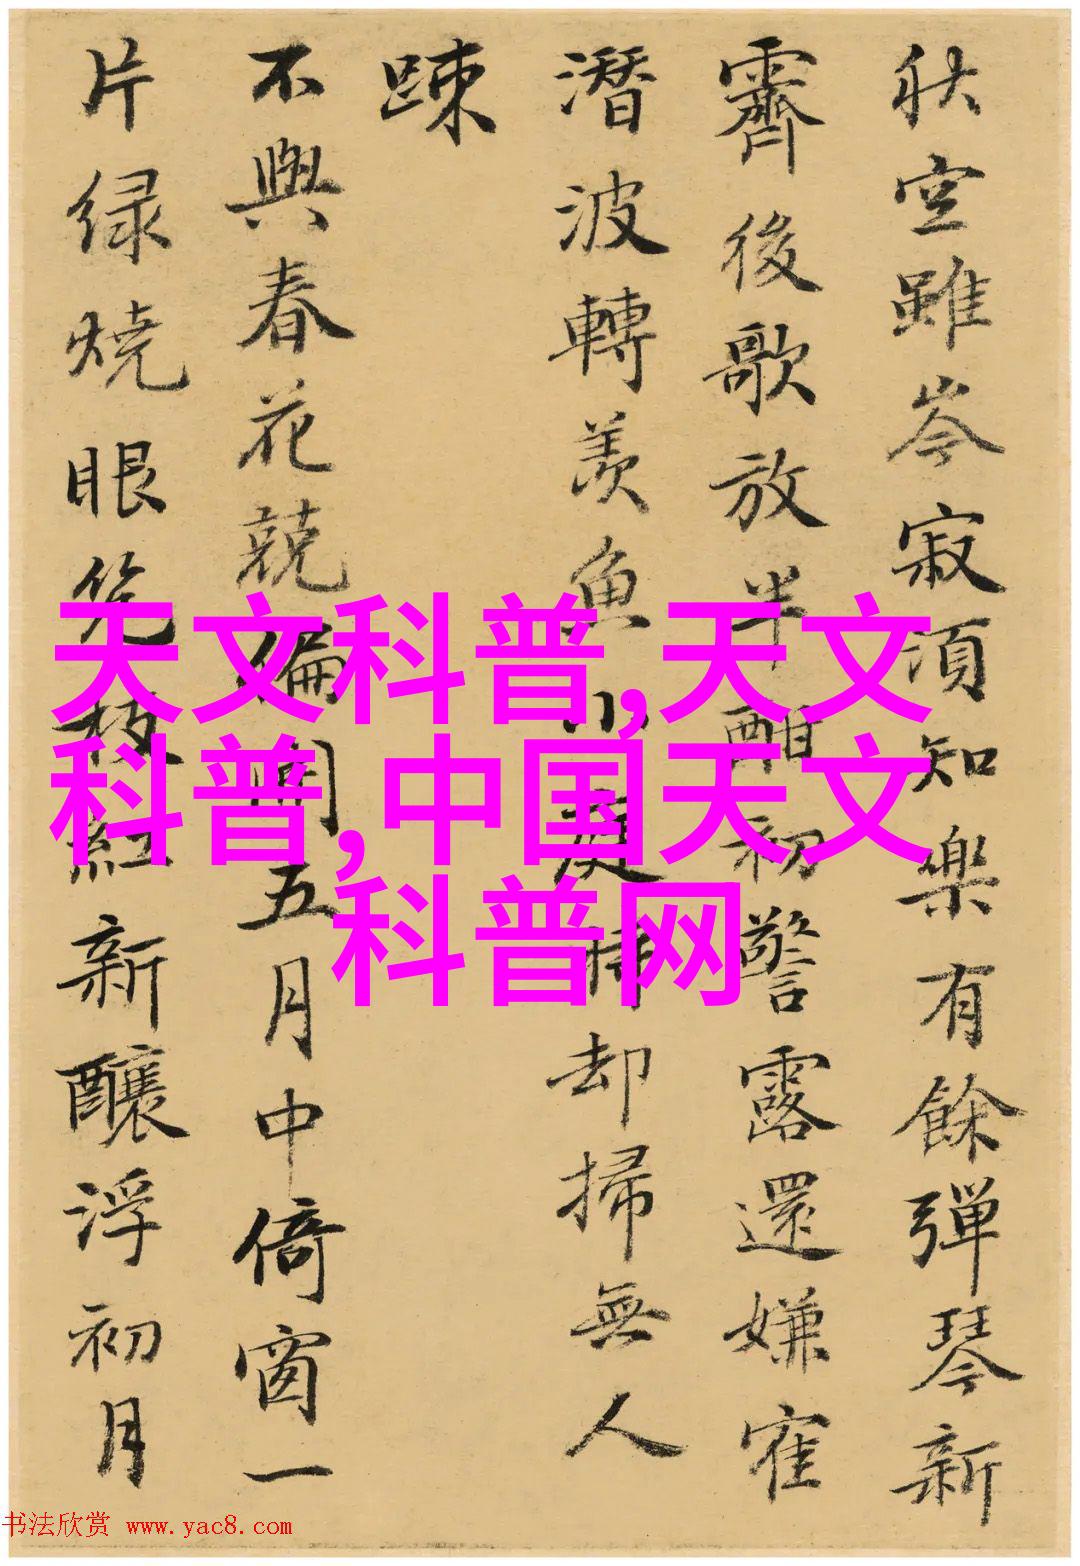 秋空雖岑寂須知樂有餘彈琴新
霽後歌放半酣初警露還嫌隺
潛波轉羨魚小庭時却掃無人
踈
不與春花競偏開五月中倚窗一
片绿燒眼枝紅新釀浮初月
天文科普,天文
科普,中国天文
科普网
书法欣赏 www.yac8.com